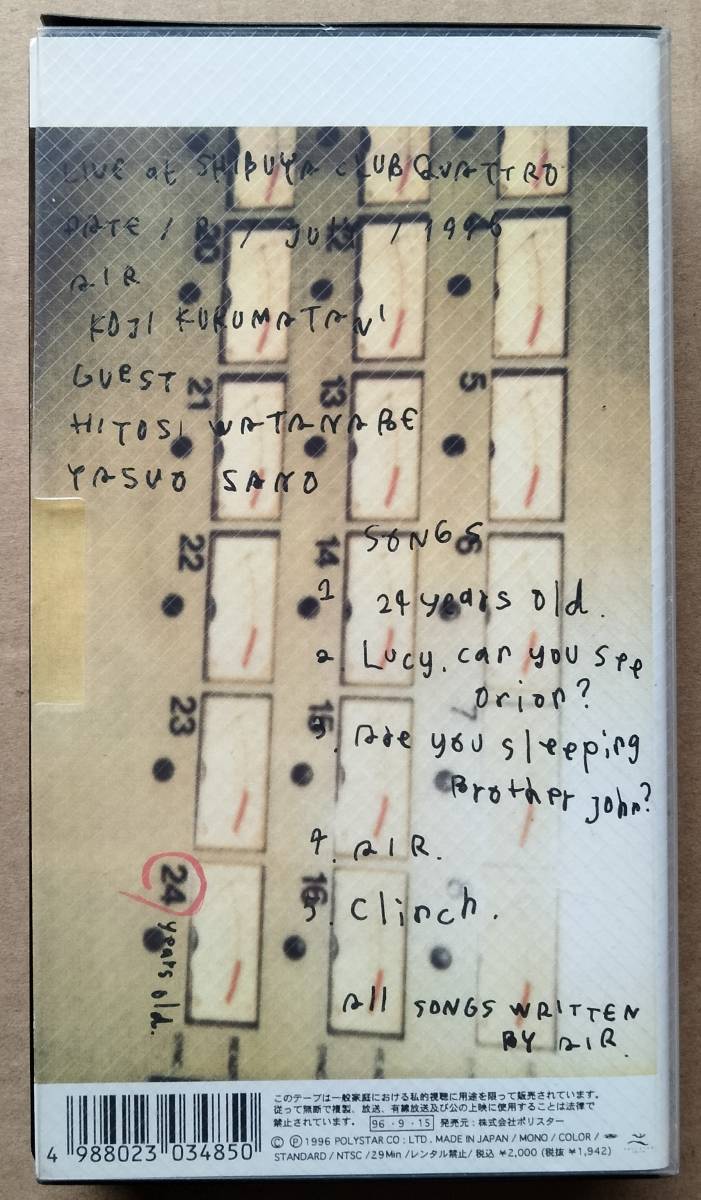 LIVE at SHIBUYA CLUB QUATTRO
DATE / / JULY / 1996
AIR
KOJI KURUMATANI
GUEST
HITOSI WATANABE
YASUO SANO
SONGS
1 24 years old.
2. Lucy. can you see
Orion?
3. Are you sleeping
Brother John?
4. AIR.
5. Clinch.
All SONGS WRITTEN
BY AIR.
20
21
13
5
22
14
6
23
15
7
24
years old.
16
4 988023 034850
このテープは一般家庭における私的視聴に用途を限って販売されています。
従って無断で複製、放送、有線放送及び公の上映に使用することは法律で
禁止されています。 96・9・15 発売元:株式会社ポリスター
© ℗ 1996 POLYSTAR CO : LTD. MADE IN JAPAN / MONO / COLOR /
STANDARD / NTSC / 29Min /レンタル禁止/ 税込 ¥2,000 (税抜 ¥1,942)